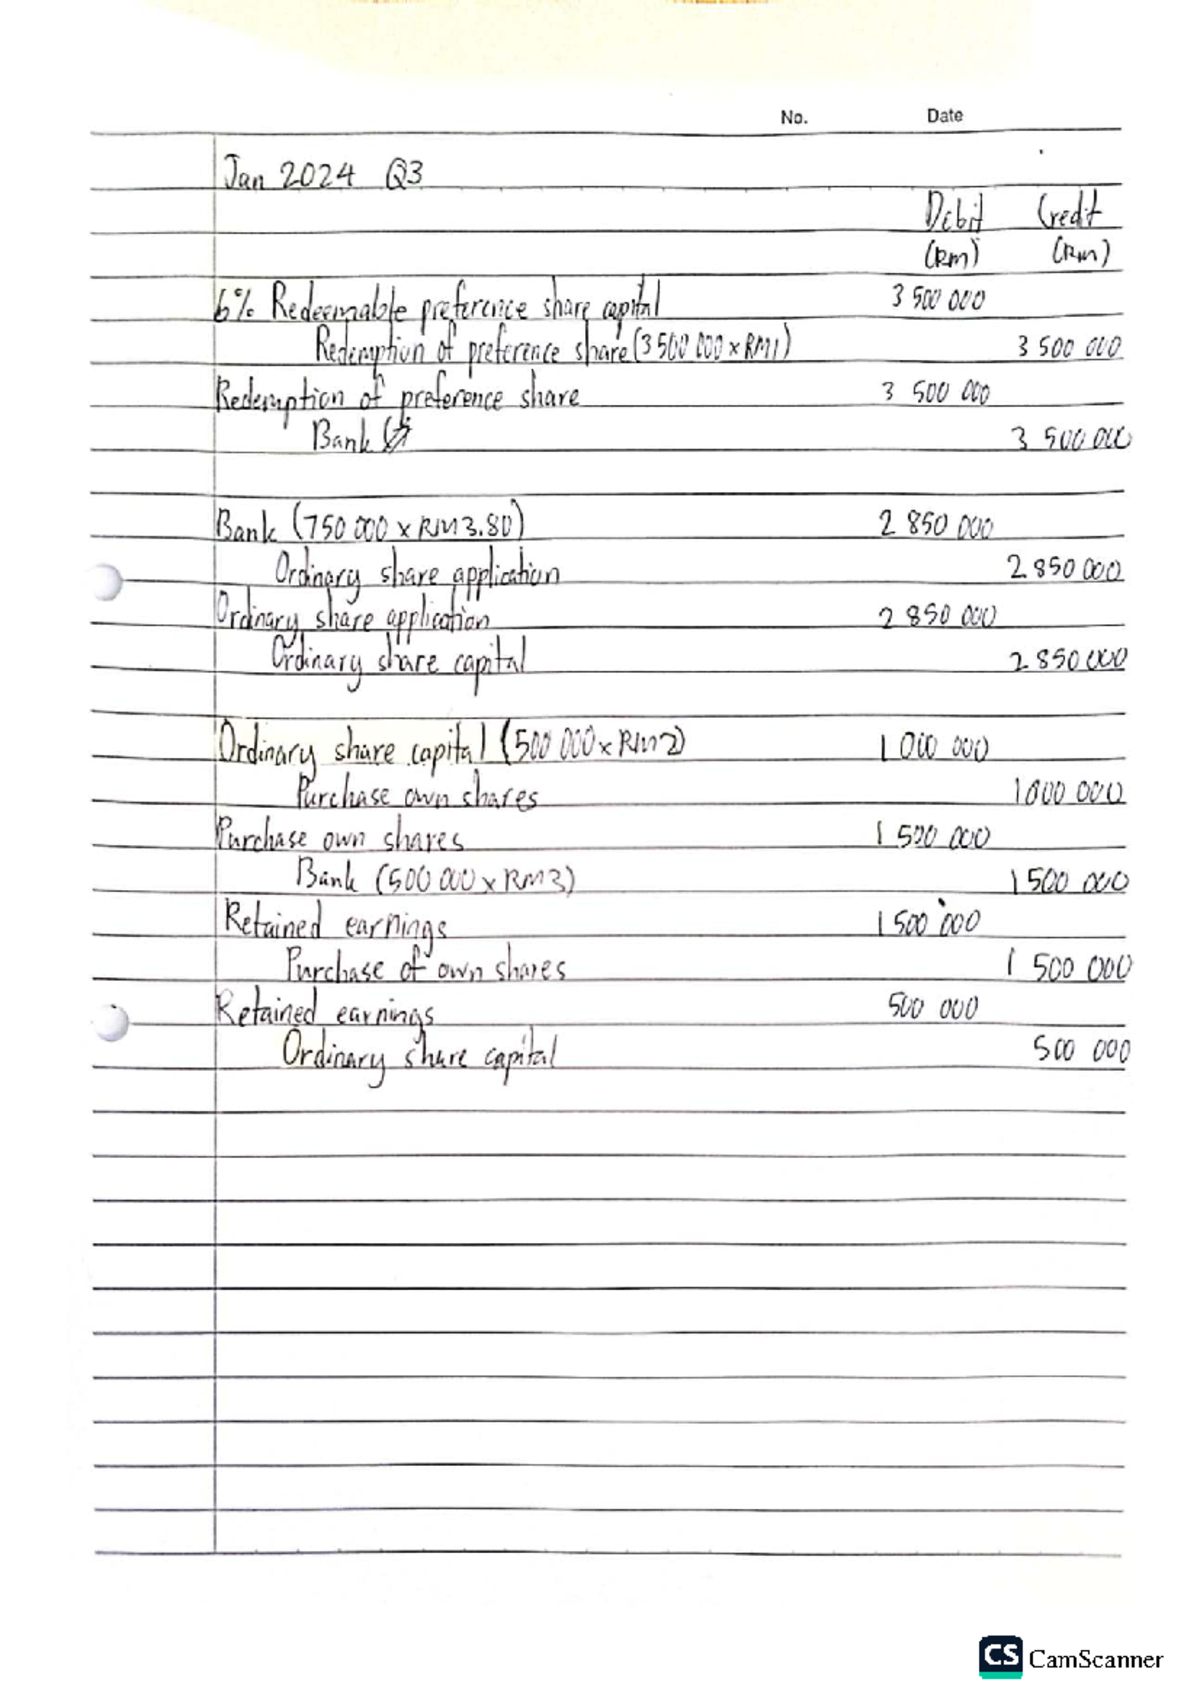 No. Date
Jan 2024 Q3
Debit Credit
(RM) (RM)
6% Redeemable preference share capital 3 500 000
Redemption of preference share (3 500 000 x RM1) 3 500 000
Redemption of preference share 3 500 000
Bank 3 500 000
Bank (750 000 x RM3.80) 2 850 000
Ordinary share application 2 850 000
Ordinary share application 2 850 000
Ordinary share capital 2 850 000
Ordinary share capital (500 000 x RM2) 1 000 000
Purchase own shares 1 000 000
Purchase own shares 1 500 000
Bank (500 000 x RM3) 1 500 000
Retained earnings 1 500 000
Purchase of own shares 1 500 000
Retained earnings 500 000
Ordinary share capital 500 000
CS CamScanner